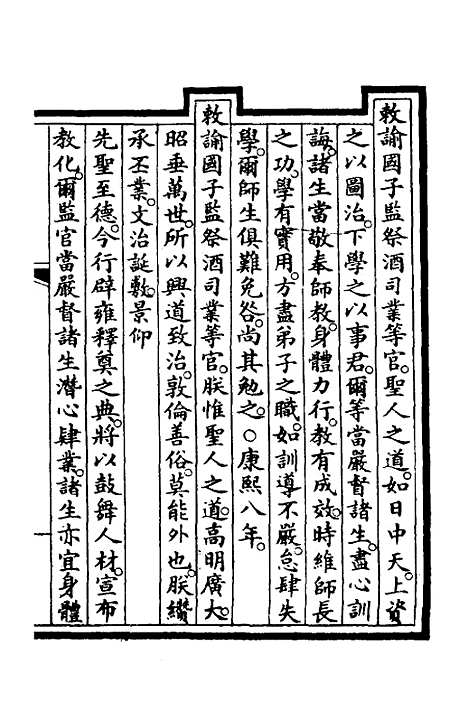 敕諭國子監祭酒司業等官。聖人之道。如日中天。上資
之以圖治。下學之以事君。爾等當嚴督諸生。盡心訓
誨。諸生當敬奉師教。身體力行。教有成效。時維師長
之功。學有實用。方盡弟子之職。如訓導不嚴。怠肆失
學。爾師生俱難免咎。尚其勉之。○康熙八年。
敕諭國子監祭酒司業等官。朕惟聖人之道。高明廣大。
昭垂萬世。所以興道致治。敦倫善俗。莫能外也。朕纘
承丕業。文治誕敷。景仰
先聖至德。今行辟雍釋奠之典。將以鼓舞人材。宣布
教化。爾監官當嚴督諸生。潛心肄業。諸生亦宜身體